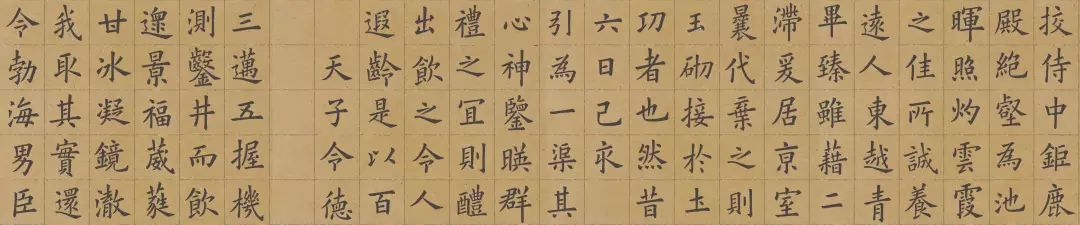 挍侍中鉅鹿
殿絕壑為池
暉照灼雲霞
之佳所誠養
遠人東越青
畢臻雖藉二
滯爰居京室
曩代棄之則
玉砌接於土
㓛者也然昔
六日己亥
引為一渠其
心神鑒暎群
禮之宜則醴
出飲之令人
遐齡是以百
天子令德
三邁五握機
測鑿井而飲
遝景福葳蕤
甘冰凝鏡澈
我取其實還
令勃海男臣